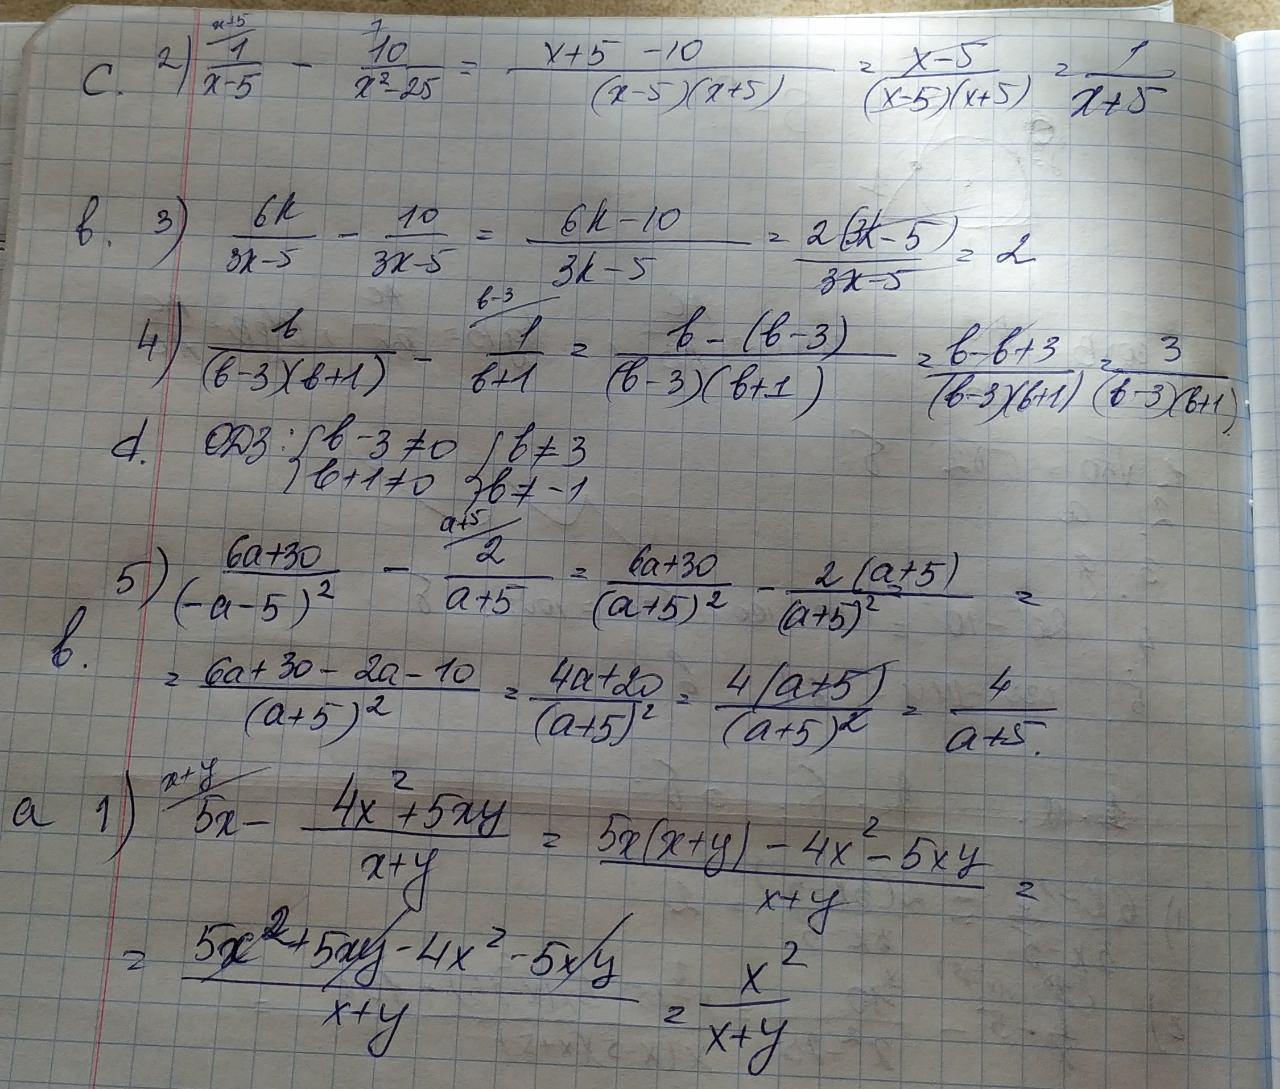 c. 2) x+5/ 1/(x-5) - 1/ 10/(x²-25) = (x+5-10)/((x-5)(x+5)) = (x-5)/((x-5)(x+5)) = 1/(x+5)
в. 3) 6x/(3x-5) - 10/(3x-5) = (6x-10)/(3x-5) = 2(3x-5)/(3x-5) = 2
4) в/((в-3)(в+1)) - в-3/ 1/(в+1) = (в-(в-3))/((в-3)(в+1)) = (в-в+3)/((в-3)(в+1)) = 3/((в-3)(в+1)).
d. ОДЗ: { в-3≠0 { в≠3
{ в+1≠0 { в≠-1
5) (6a+30)/(-a-5)² - a+5/ 2/(a+5) = (6a+30)/(a+5)² - 2(a+5)/(a+5)² =
в.
= (6a+30-2a-10)/(a+5)² = (4a+20)/(a+5)² = 4(a+5)/(a+5)² = 4/(a+5).
a 1) x+y/ 5x - (4x²+5xy)/(x+y) = (5x(x+y)-4x²-5xy)/(x+y) =
= (5x²+5xy-4x²-5xy)/(x+y) = x²/(x+y)